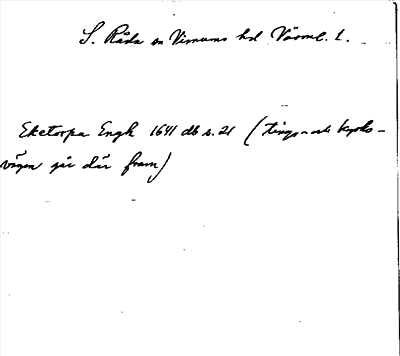 S. Råda sn Visnums hd Värml. l.
Eketorpa Engh 1641 db s. 21 (tings- och kyrko-
vägen går där fram)